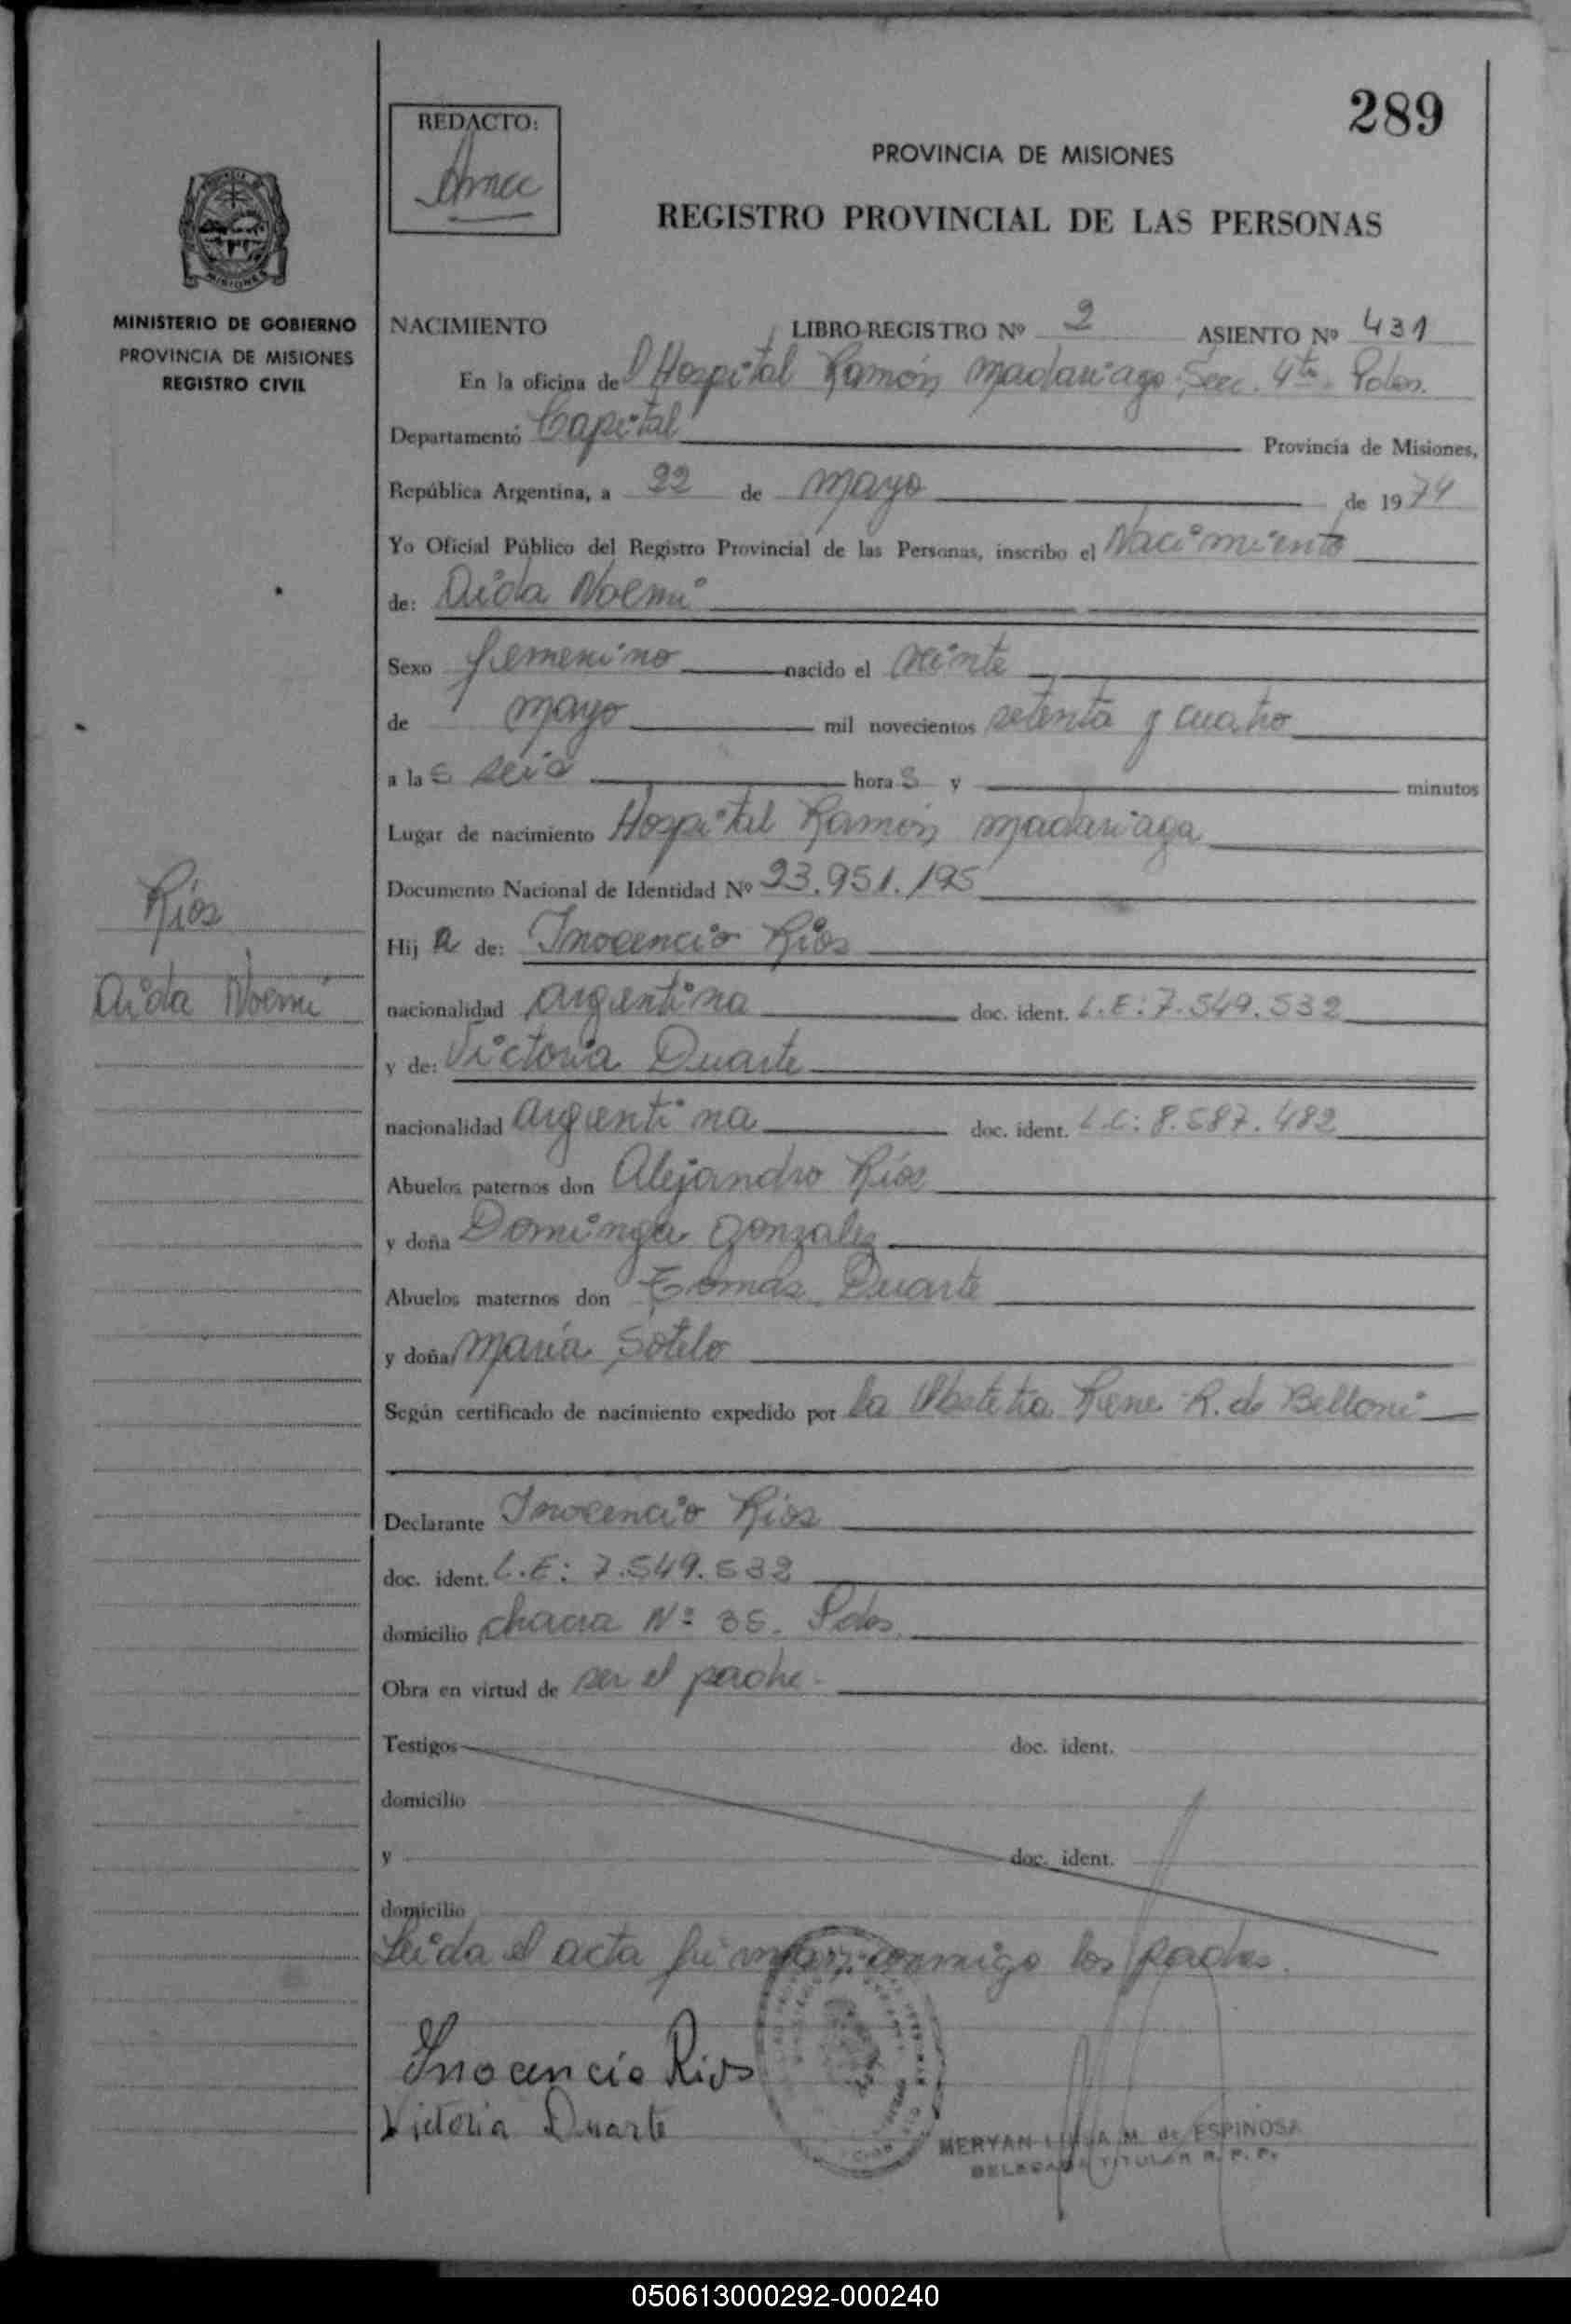 289
REDACTO:
PROVINCIA DE MISIONES
REGISTRO PROVINCIAL DE LAS PERSONAS
MINISTERIO DE GOBIERNO
PROVINCIA DE MISIONES
REGISTRO CIVIL
NACIMIENTO LIBRO-REGISTRO Nº 2 ASIENTO Nº 431
En la oficina del Hospital Ramón Madariaga Secc. 4ta. Pdas.
Departamento Capital Provincia de Misiones,
República Argentina, a 22 de mayo de 1974
Yo Oficial Público del Registro Provincial de las Personas, inscribo el Nacimiento
de: Aida Noemi
Sexo femenino nacido el veinte
de mayo mil novecientos setenta y cuatro
a las seis horas y minutos
Lugar de nacimiento Hospital Ramón Madariaga
Documento Nacional de Identidad Nº 23.951.195
Ríos
Hija de: Inocencio Ríos
Aida Noemi
nacionalidad argentina doc. ident. L.E: 7.549.532
y de: Victoria Duarte
nacionalidad argentina doc. ident. L.C: 8.587.482
Abuelos paternos don Alejandro Ríos
y doña Dominga Gonzalez
Abuelos maternos don Tomás Duarte
y doña María Sotelo
Según certificado de nacimiento expedido por la Obstetra Rene R. de Belloni
Declarante Inocencio Ríos
doc. ident. L.E: 7.549.532
domicilio chacra Nº 35. Pdas.
Obra en virtud de ser el padre.
Testigos doc. ident.
domicilio
y doc. ident.
domicilio
Leida el acta firman conmigo los padres.
Inocencio Rios
Victoria Duarte
MERYAN M. de ESPINOSA
DELEGADA TITULAR R. P. P.
050613000292-000240